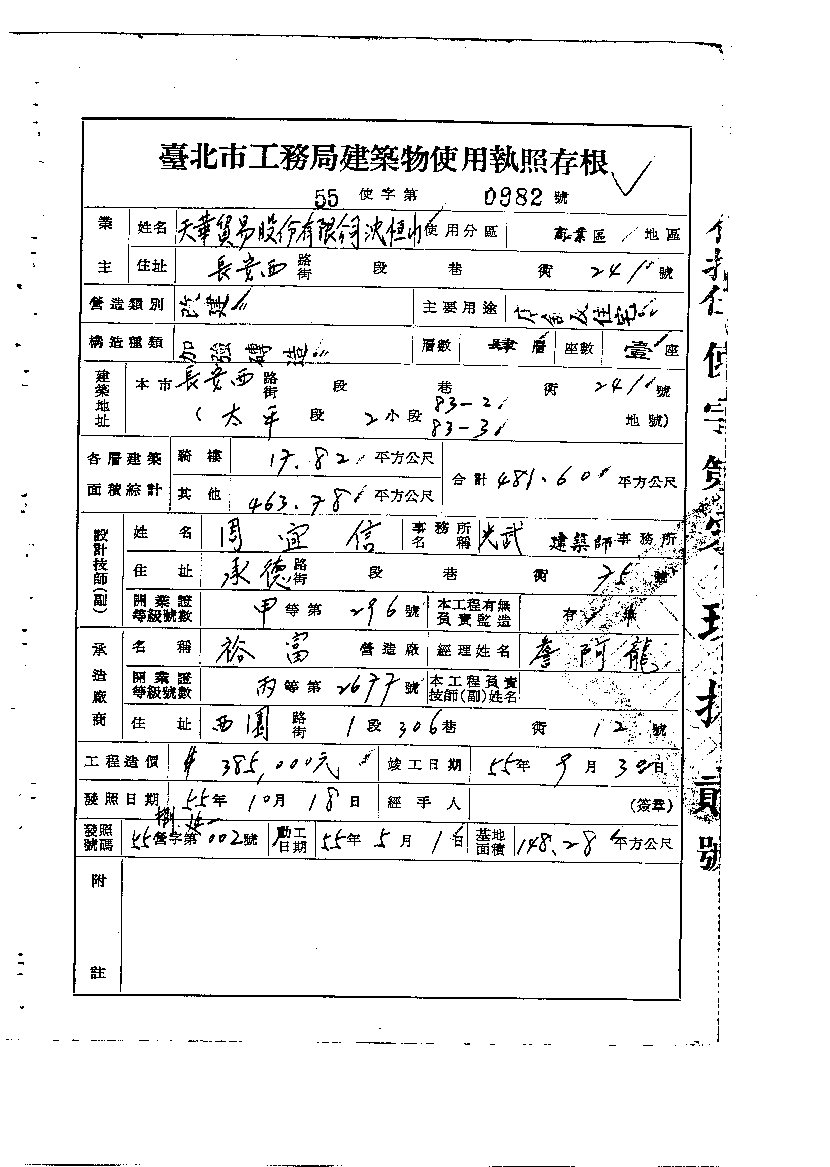 臺北市工務局建築物使用執照存根
55 使字第 0982 號
業主 姓名 天華貿易股份有限公司 沈恒山 使用分區 商業區 地區
住址 長安西 路街 段 巷 衖 24 號
營造類別 改建 主要用途 店舍及住宅
構造種類 加強磚造 層數 肆層 座數 壹座
建築地址 本市 長安西 路街 段 巷 衖 24 號
(太平 段 2 小段 83-2 83-3 地號)
各層建築面積綜計 騎樓 17.82 平方公尺 合計 481.60 平方公尺
其他 463.78 平方公尺
設計技師(副) 姓名 周宜信 事務所名稱 光武 建築師事務所
住址 承德 路街 段 巷 衖 75 號
開業證等級號數 甲等第 296 號 本工程有無負責監造 有 無
承造廠商 名稱 裕富 營造廠 經理姓名 詹阿龍
開業證等級號數 丙等第 2677 號 本工程負責技師(副)姓名
住址 西園 路街 1 段 306 巷 衖 12 號
工程造價 $385,000元 竣工日期 55年 9月 30日
發照日期 55年 10月 18日 經手人 (簽章)
發照號碼 55營字第002號 動工日期 55年 5月 1日 基地面積 148.28 平方公尺
附註
使字第
號